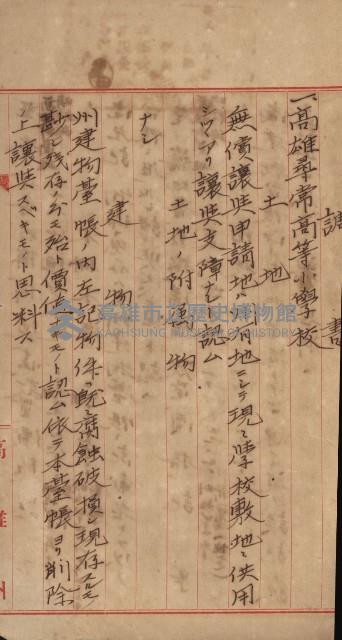 調書
一、高雄尋常高等小學校
土地
無償讓與申請地ハ州有地ニシテ現ニ學校敷地ニ供用
シツヽアリ讓與支障ナシト認ム
土地ノ附屬物
ナシ
建物
州建物臺帳ノ内左記物件ハ既ニ腐蝕破損シ現存スルモノ
尠ク残存ノ分モ殆ト價値ナキモノト認ム依テ本臺帳ヨリ削除
ノ上讓與スベキモノト思料ス
高雄州
高雄市立歷史博物館
KAOHSIUNG MUSEUM OF HISTORY